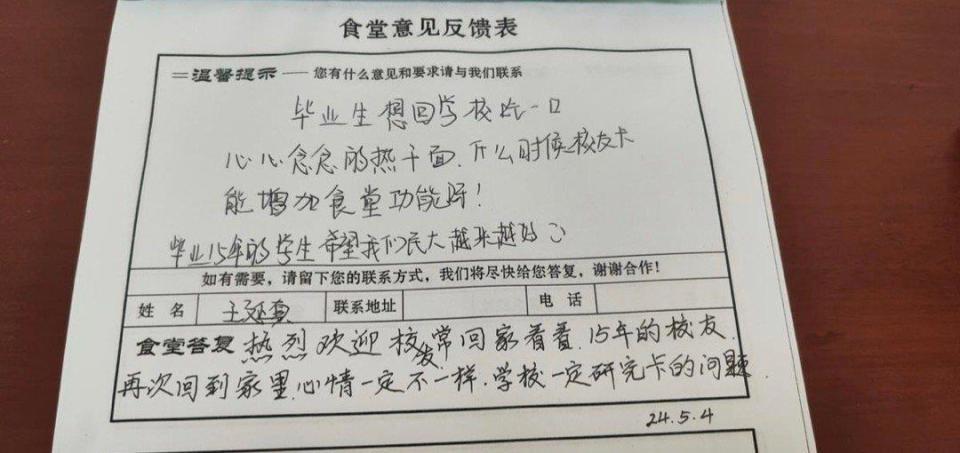 食堂意见反馈表
=温馨提示——您有什么意见和要求请与我们联系
毕业生想回学校吃一口
心心念念的热干面.什么时候校友卡
能增加食堂功能呀!
毕业15年的学生希望我们民大越来越好
如有需要，请留下您的联系方式，我们将尽快给您答复，谢谢合作!
姓 名 王 联系地址 电 话
食堂答复 热烈欢迎校友常回家看看.15年的校友.
再次回到家里心情一定不一样.学校一定研究卡的问题.
24.5.4